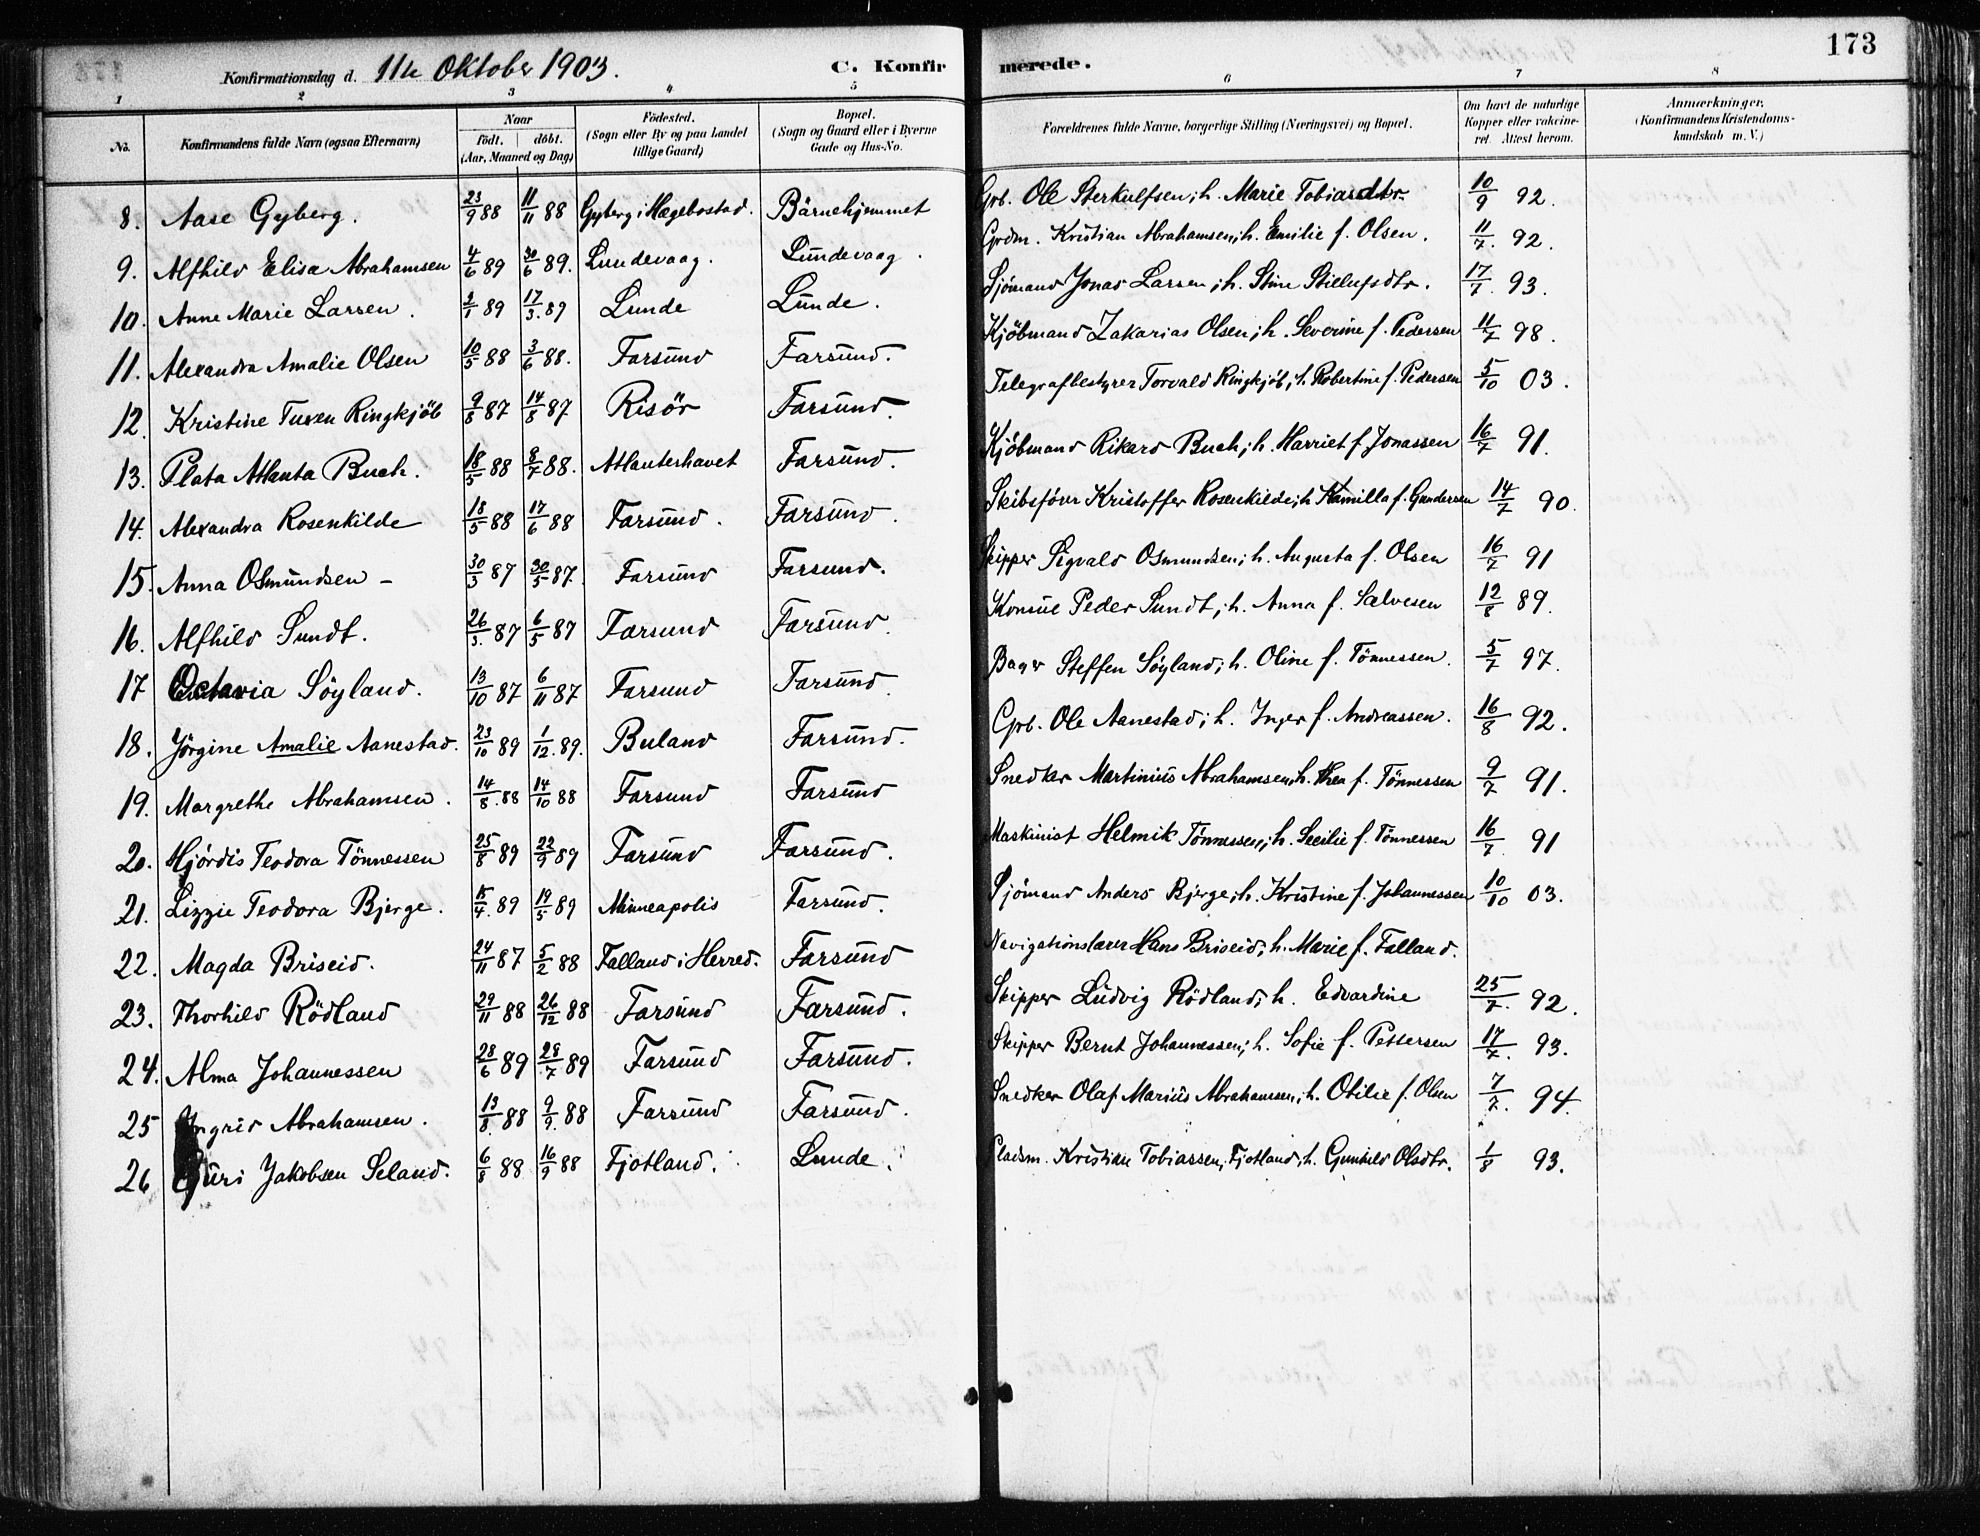 173
Konfirmationsdag d. 11te Oktober 1903. C. Konfirmerede.
1 2 3 4 5 6 7 8
No. Konfirmandens fulde Navn (ogsaa Efternavn) Naar født. døbt. (Aar, Maaned og Dag) Fødested. (Sogn eller By og paa Landet tillige Gaard) Bopæl. (Sogn og Gaard eller i Byerne Gade og Hus-No. Forældrenes fulde Navne, borgerlige Stilling (Næringsvei) og Bopæl. Om havt de naturlige Kopper eller vakcineret. Attest herom. Anmærkninger. (Konfirmandens Kristendomskundskab m. V.)
8. Aase Gyberg. 23/9 88 11/11 88 Gyberg i Hægebostad. Börnehjemmet Grb. Ole Sterkulfsen; h. Marie Tobiasdtr. 10/9 92.
9. Alfhild Elisa Abrahamsen 4/6 89 30/6 89. Lundevaag. Lundevaag. Grdm. Kristian Abrahamsen; h. Emilie f. Olsen. 11/7. 92.
10. Anne Marie Larsen. 2/1 89 17/3. 89 Lunde Lunde. Sjömand Jonas Larsen; h. Stine Stillufsdtr. 17/7. 93.
11. Alexandra Amalie Olsen 10/5 88 3/6 88. Farsund Farsund. Kjöbmand Zakarias Olsen; h. Severine f. Pedersen 11/7 98.
12. Kristine Tuxen Ringkjöb 9/8 87 14/8 87 Risör Farsund. Telegrafbestyrer Torvald Ringkjöb; h. Robertine f. Pedersen 5/10 03.
13. Plata Atlanta Buch. 18/5 88 8/7 88. Atlanterhavet Farsund. Kjöbmand Rikard Buch; h. Harriet f. Jonassen 16/7 91.
14. Alexandra Rosenkilde 18/5 88 17/6 88 Farsund. Farsund. Skibsförer Kristoffer Rosenkilde; h. Kamilla f. Gundersen 14/7 90.
15. Anna Osmundsen – 30/3 87 30/5 87. Farsund Farsund. Skipper Sigvald Osmundsen; h. Augusta f. Olsen 16/7 91
16. Alfhild Sundt. 26/3. 87 6/5 87 Farsund Farsund. Konsul Peder Sundt; h. Anna f. Salvesen 12/8 89.
17 Octavia Söyland. 13/10 87 6/11 87 Farsund Farsund. Bager Steffen Söyland; h. Oline f. Tönnessen. 5/7 97.
18. Jörgine Amalie Aanestad. 23/10 89 1/12. 89. Buland Farsund. Grb. Ole Aanestad; h. Inger f. Andreassen. 16/8 92.
19. Margrethe Abrahamsen. 14/8. 88 14/10 88 Farsund Farsund Snedker Martinius Abrahamsen; h. Thea f. Tönnessen 9/7 91.
20. Hjördis Teodora Tönnessen 25/8 89 22/9 89 Farsund Farsund. Maskinist Helmik Tönnessen; h. Secilie f. Tönnessen 16/7. 91
21. Lizzie Teodora Bjerge. 15/4. 89 19/5 89 Minneapolis Farsund. Sjömand Anders Bjerge; h. Kristine f. Johannessen 10/10 03.
22. Magda Briseid. 24/11 87 5/2 88 Falland i Herred. Farsund Navigationslærer Hans Briseid; h. Marie f. Falland.
23. Thorhild Rödland 29/11 88 26/12 88 Farsund Farsund. Skipper Ludvig Rödland; h. Edvardine 25/7. 92.
24. Alma Johannessen 28/6 89 28/7 89 Farsund Farsund. Skipper Bernt Johannessen; h. Sofie f. Pettersen 17/7. 93.
25 Ingrid Abrahamsen. 13/8 88 9/9. 88 Farsund Farsund. Snedker Olaf Marius Abrahamsen; h. Otilie f. Olsen 7/7. 94.
26 Guri Jakobsen Seland. 6/8 88 16/9 88 Fjotland. Lunde. Pladsm. Kristian Tobiassen, Fjotland; h. Gunhild Olsdtr. 1/8 93.